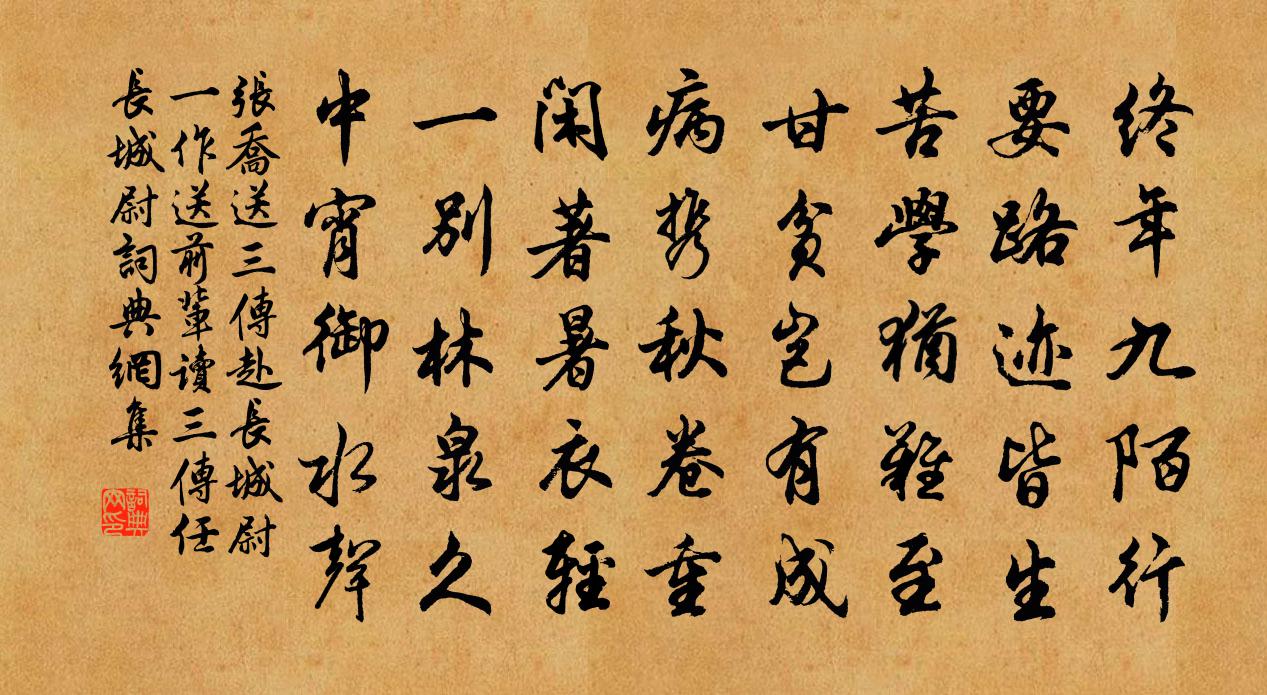 終年九陌行
要路迹皆生
苦學猶難至
甘貧豈有成
病攜秋卷重
閑著暑衣輕
一別林泉久
中宵御水聲
張喬送三傳赴長城尉
一作送前輩讀三傳任
長城尉詞典網集
詞典
网印